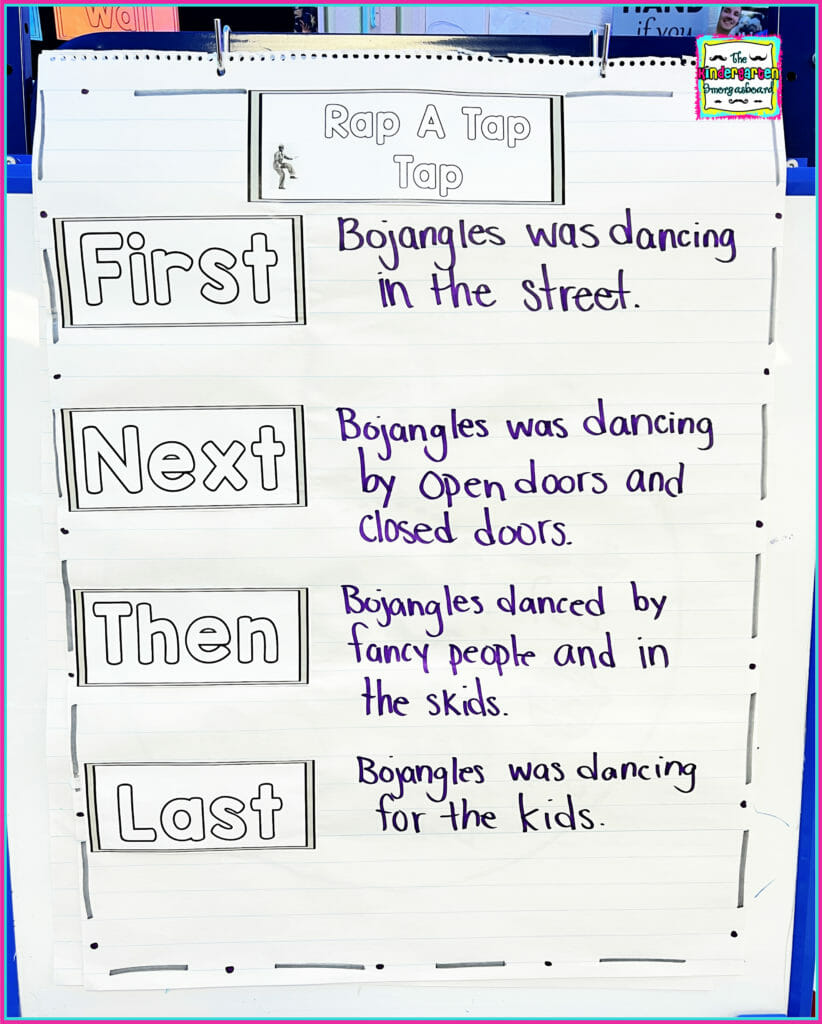 wa
HAND
if you
The
Kindergarten
Smorgasboard
Rap A Tap
Tap
First
Bojangles was dancing
in the street.
Next
Bojangles was dancing
by open doors and
closed doors.
Then
Bojangles danced by
fancy people and in
the skids.
Last
Bojangles was dancing
for the kids.